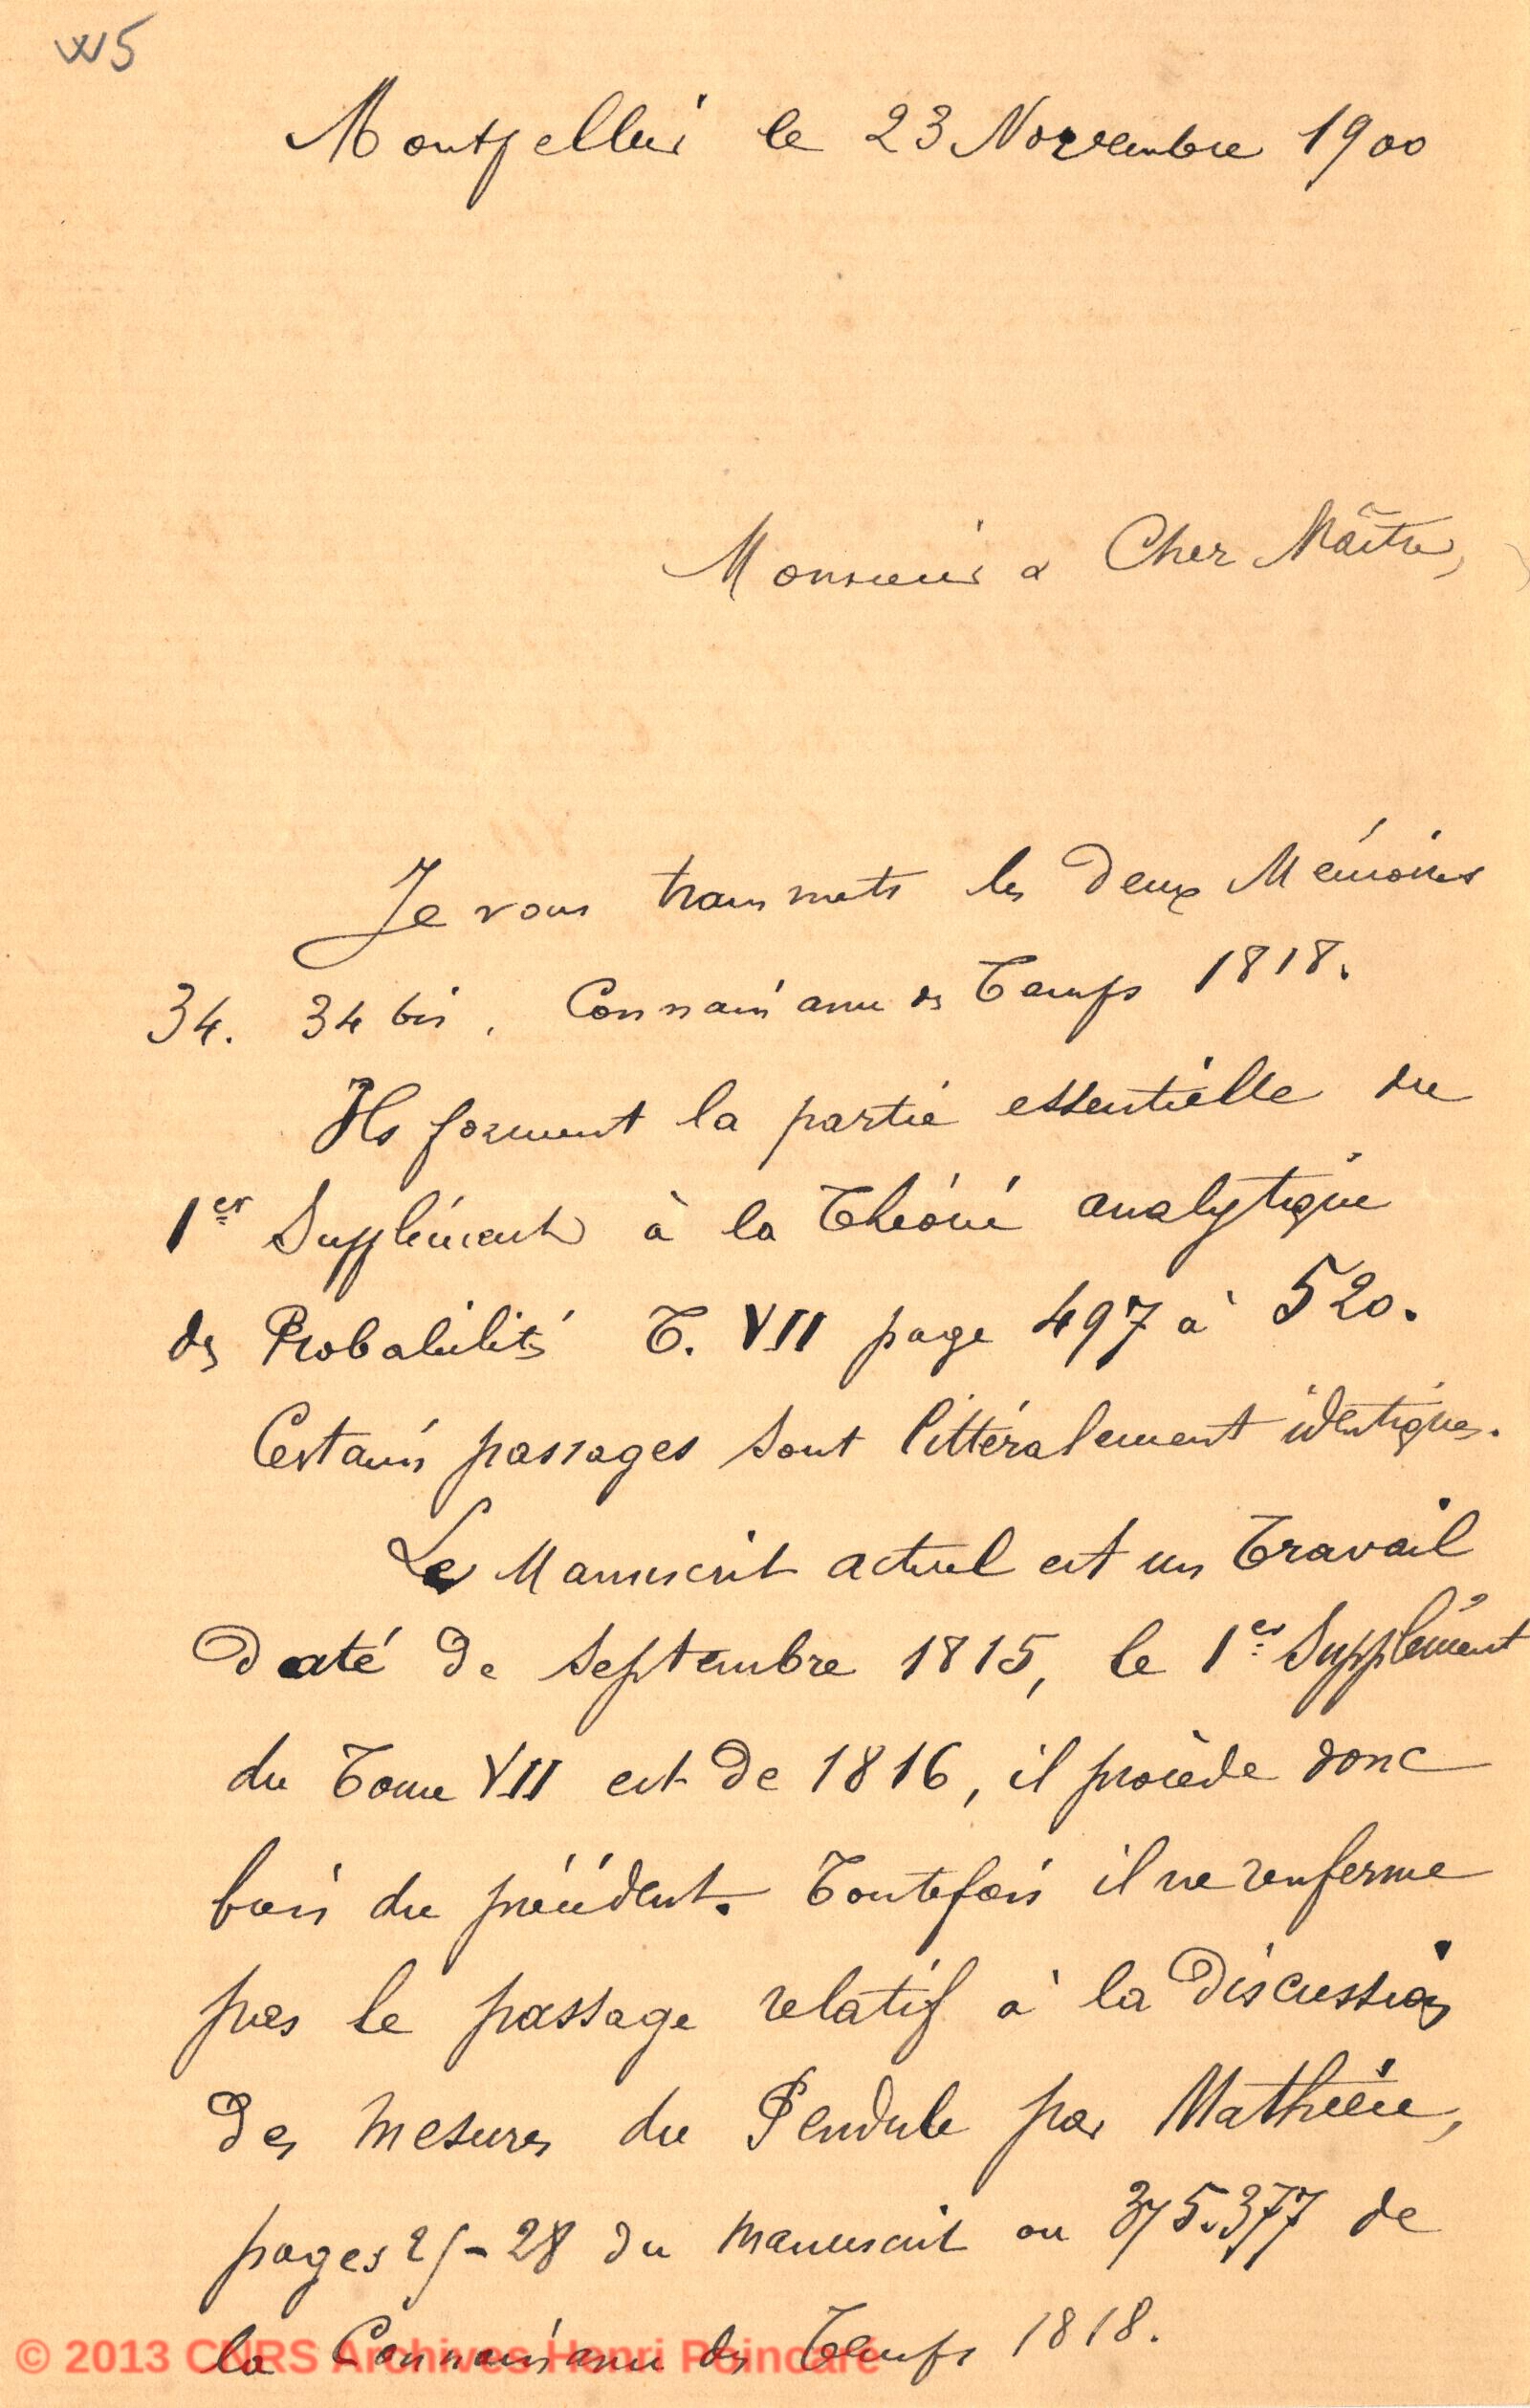 W5
Montpellier le 23 Novembre 1900
Monsieur & Cher Maître,
Je vous transmets les deux Mémoires
34. 34 bis, Connaissance des Temps 1818.
Ils forment la partie essentielle du
1er Supplément à la Théorie analytique
des Probabilités T. VII page 497 à 520.
Certains passages sont littéralement identiques.
Le Manuscrit actuel est un Travail
Daté de Septembre 1815, le 1er Supplément
du Tome VII est de 1816, il procède donc
bien du précédent. Toutefois il ne renferme
pas le passage relatif à la Discussion
Des Mesures du Pendule par Mathieu,
pages 25-28 du Manuscrit ou 375.377 de
la Connaissance des Temps 1818.
© 2013 CNRS Archives Henri Poincaré